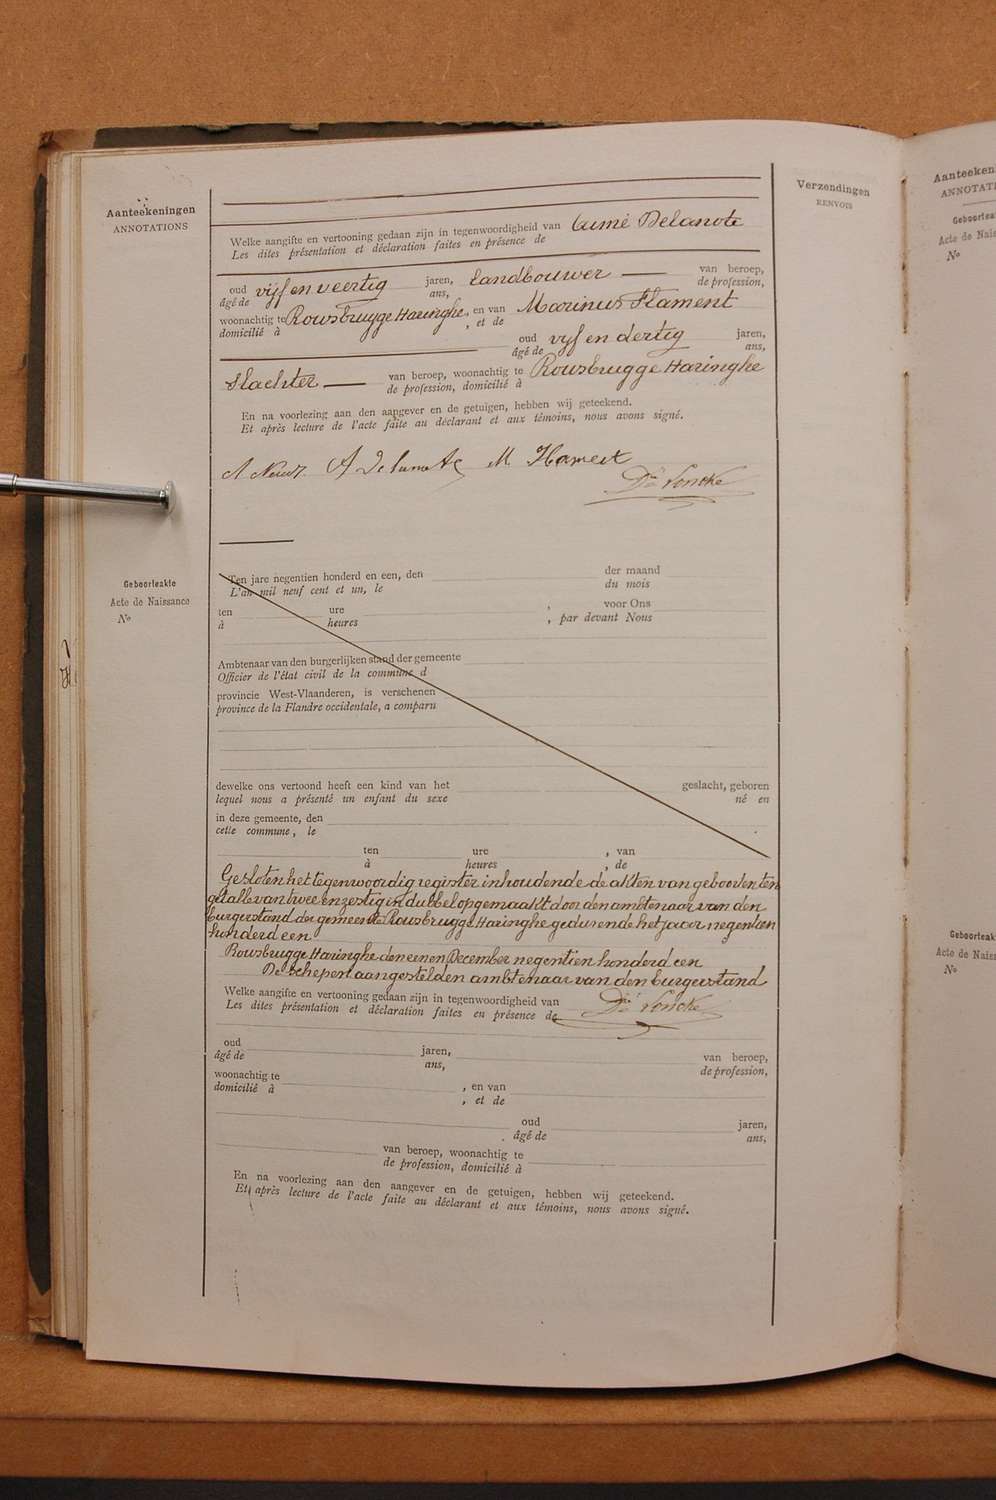 Aanteekeningen
ANNOTATIONS
Verzendingen
RENVOIS
Welke aangifte en vertooning gedaan zijn in tegenwoordigheid van Cumé Delanote
Les dites présentation et déclaration faites en présence de
oud vijf en veertig jaren, Landbouwer van beroep,
âgé de ans, de profession,
woonachtig te Rousbrugge Haringhe, en van Marinus Flament
domicilié à , et de
oud vijf en dertig jaren,
âgé de ans,
Slachter van beroep, woonachtig te Rousbrugge Haringhe
de profession, domicilié à
En na voorlezing aan den aangever en de getuigen, hebben wij geteekend.
Et après lecture de l'acte faite au déclarant et aux témoins, nous avons signé.
Geboorteakte
Acte de Naissance
No
Ten jare negentien honderd en een, den der maand
L'an mil neuf cent et un, le du mois
ten ure , voor Ons
à heures , par devant Nous
Ambtenaar van den burgerlijken stand der gemeente
Officier de l'état civil de la commune d
provincie West-Vlaanderen, is verschenen
province de la Flandre occidentale, a comparu
dewelke ons vertoond heeft een kind van het geslacht, geboren
lequel nous a présenté un enfant du sexe né en
in deze gemeente, den
cette commune, le
ten ure , van
à heures , de
Gesloten het tegenwoordig register inhoudende de akten van geboorten ten
getalle van twee en zestig in dubbel opgemaakt door den ambtenaar van den
burgerstand der gemeente Rousbrugge Haringhe gedurende het jaar negentien
honderd een
Rousbrugge Haringhe den eenen December negentien honderd een
De schepen aangestelden ambtenaar van den burgerstand
Welke aangifte en vertooning gedaan zijn in tegenwoordigheid van
Les dites présentation et déclaration faites en présence de
oud jaren, van beroep,
âgé de ans, de profession,
woonachtig te , en van
domicilié à , et de
oud jaren,
âgé de ans,
van beroep, woonachtig te
de profession, domicilié à
En na voorlezing aan den aangever en de getuigen, hebben wij geteekend.
Et après lecture de l'acte faite au déclarant et aux témoins, nous avons signé.